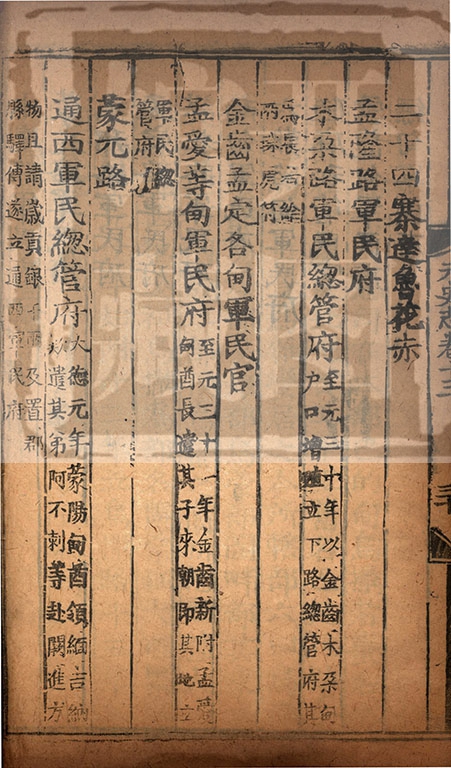 二十四寨達魯花赤
孟隆路軍民府
木朵路軍民總管府至元三十年以金齒木朵甸
戶口增立下路總管府其
為長者給
兩珠虎符
金齒孟定各甸軍民官
孟愛等甸軍民府至元三十一年金齒新附孟愛
甸酋長遣其子來朝即其地立
軍民總
管府
蒙元路
通西軍民總管府大德元年蒙陽甸酋領緬吉納
款遣其弟阿不剌等赴闕進方
物且請歲貢銀千兩及置郡
縣驛傳遂立通西軍民府